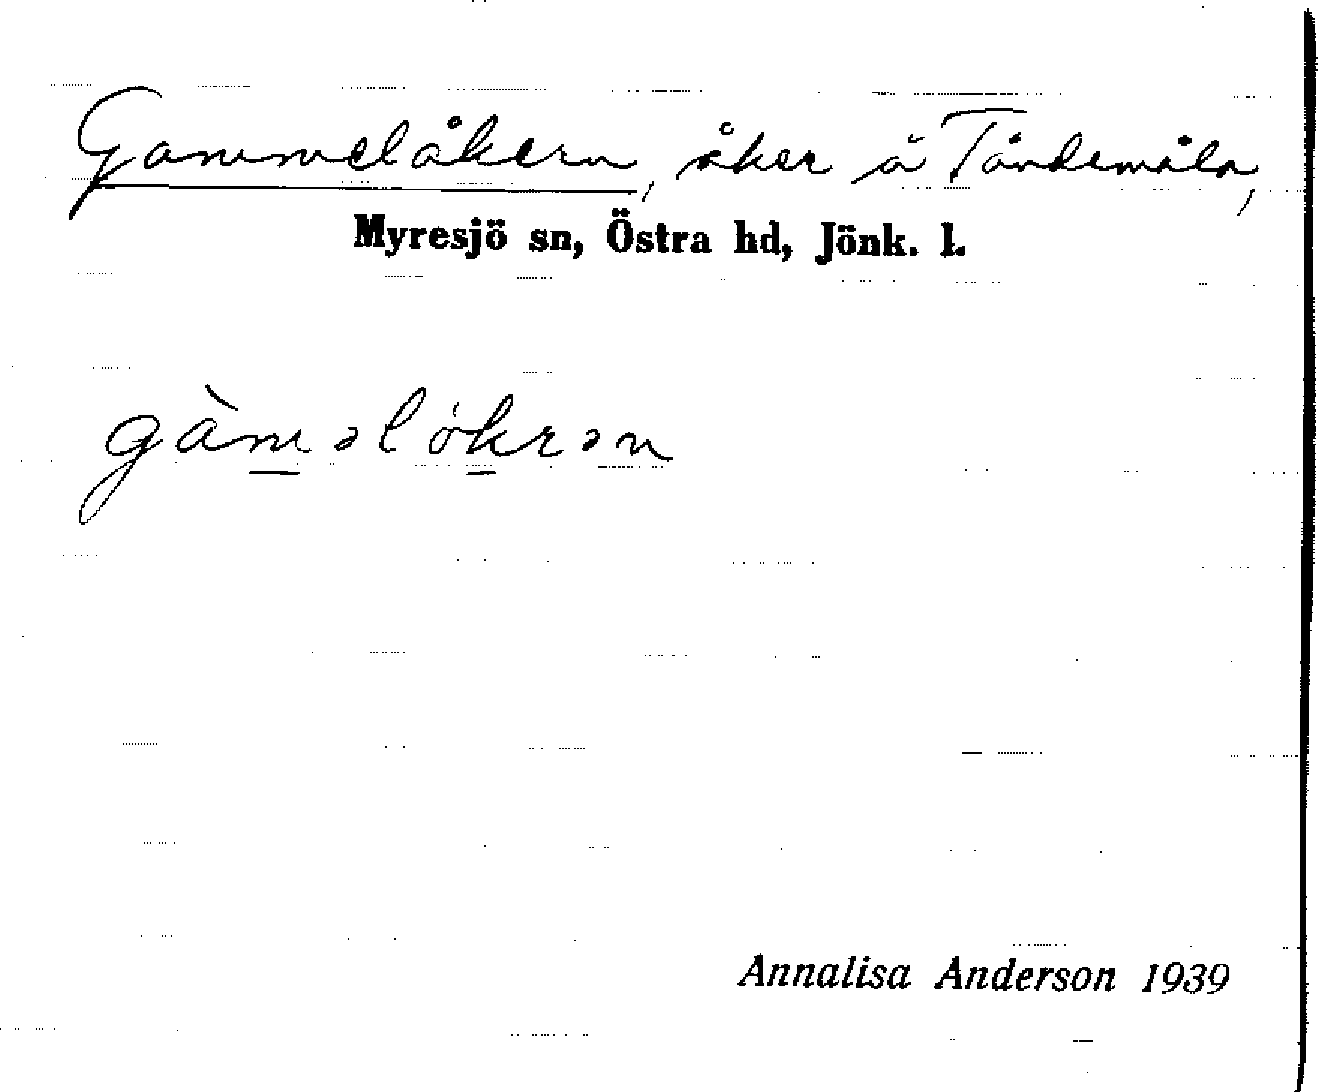 Gammelåkern, åker å Tåndemåla,
Myresjö sn, Östra hd, Jönk. l.
gàməlókrən
Annalisa Anderson 1939